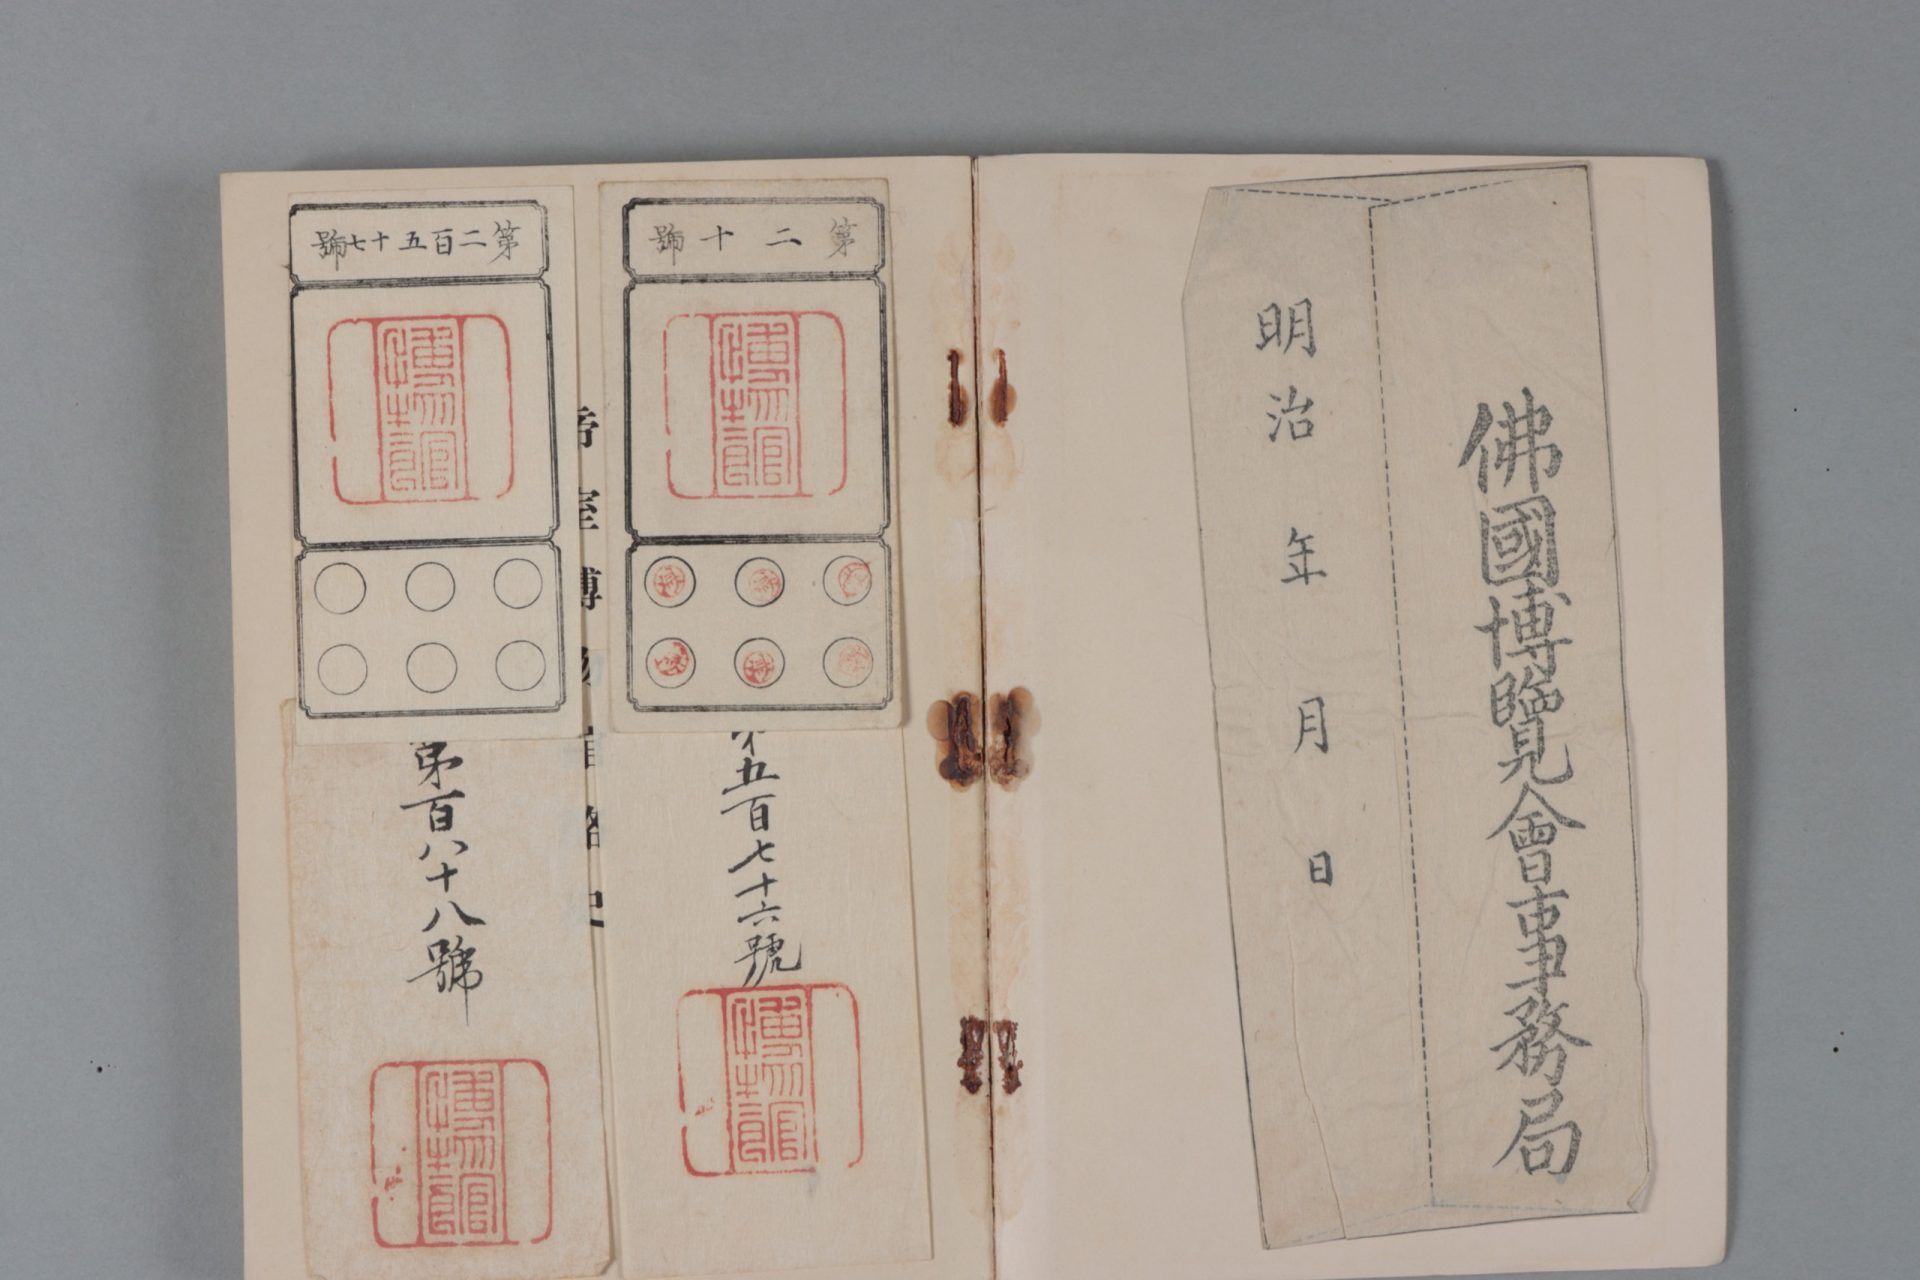 佛國博覽會事務局
明治　年　月　日
第二十號
博物館
五百七十六號
博物館
第二百五十七號
博物館
第百八十八號
博物館
帝室博物館略史